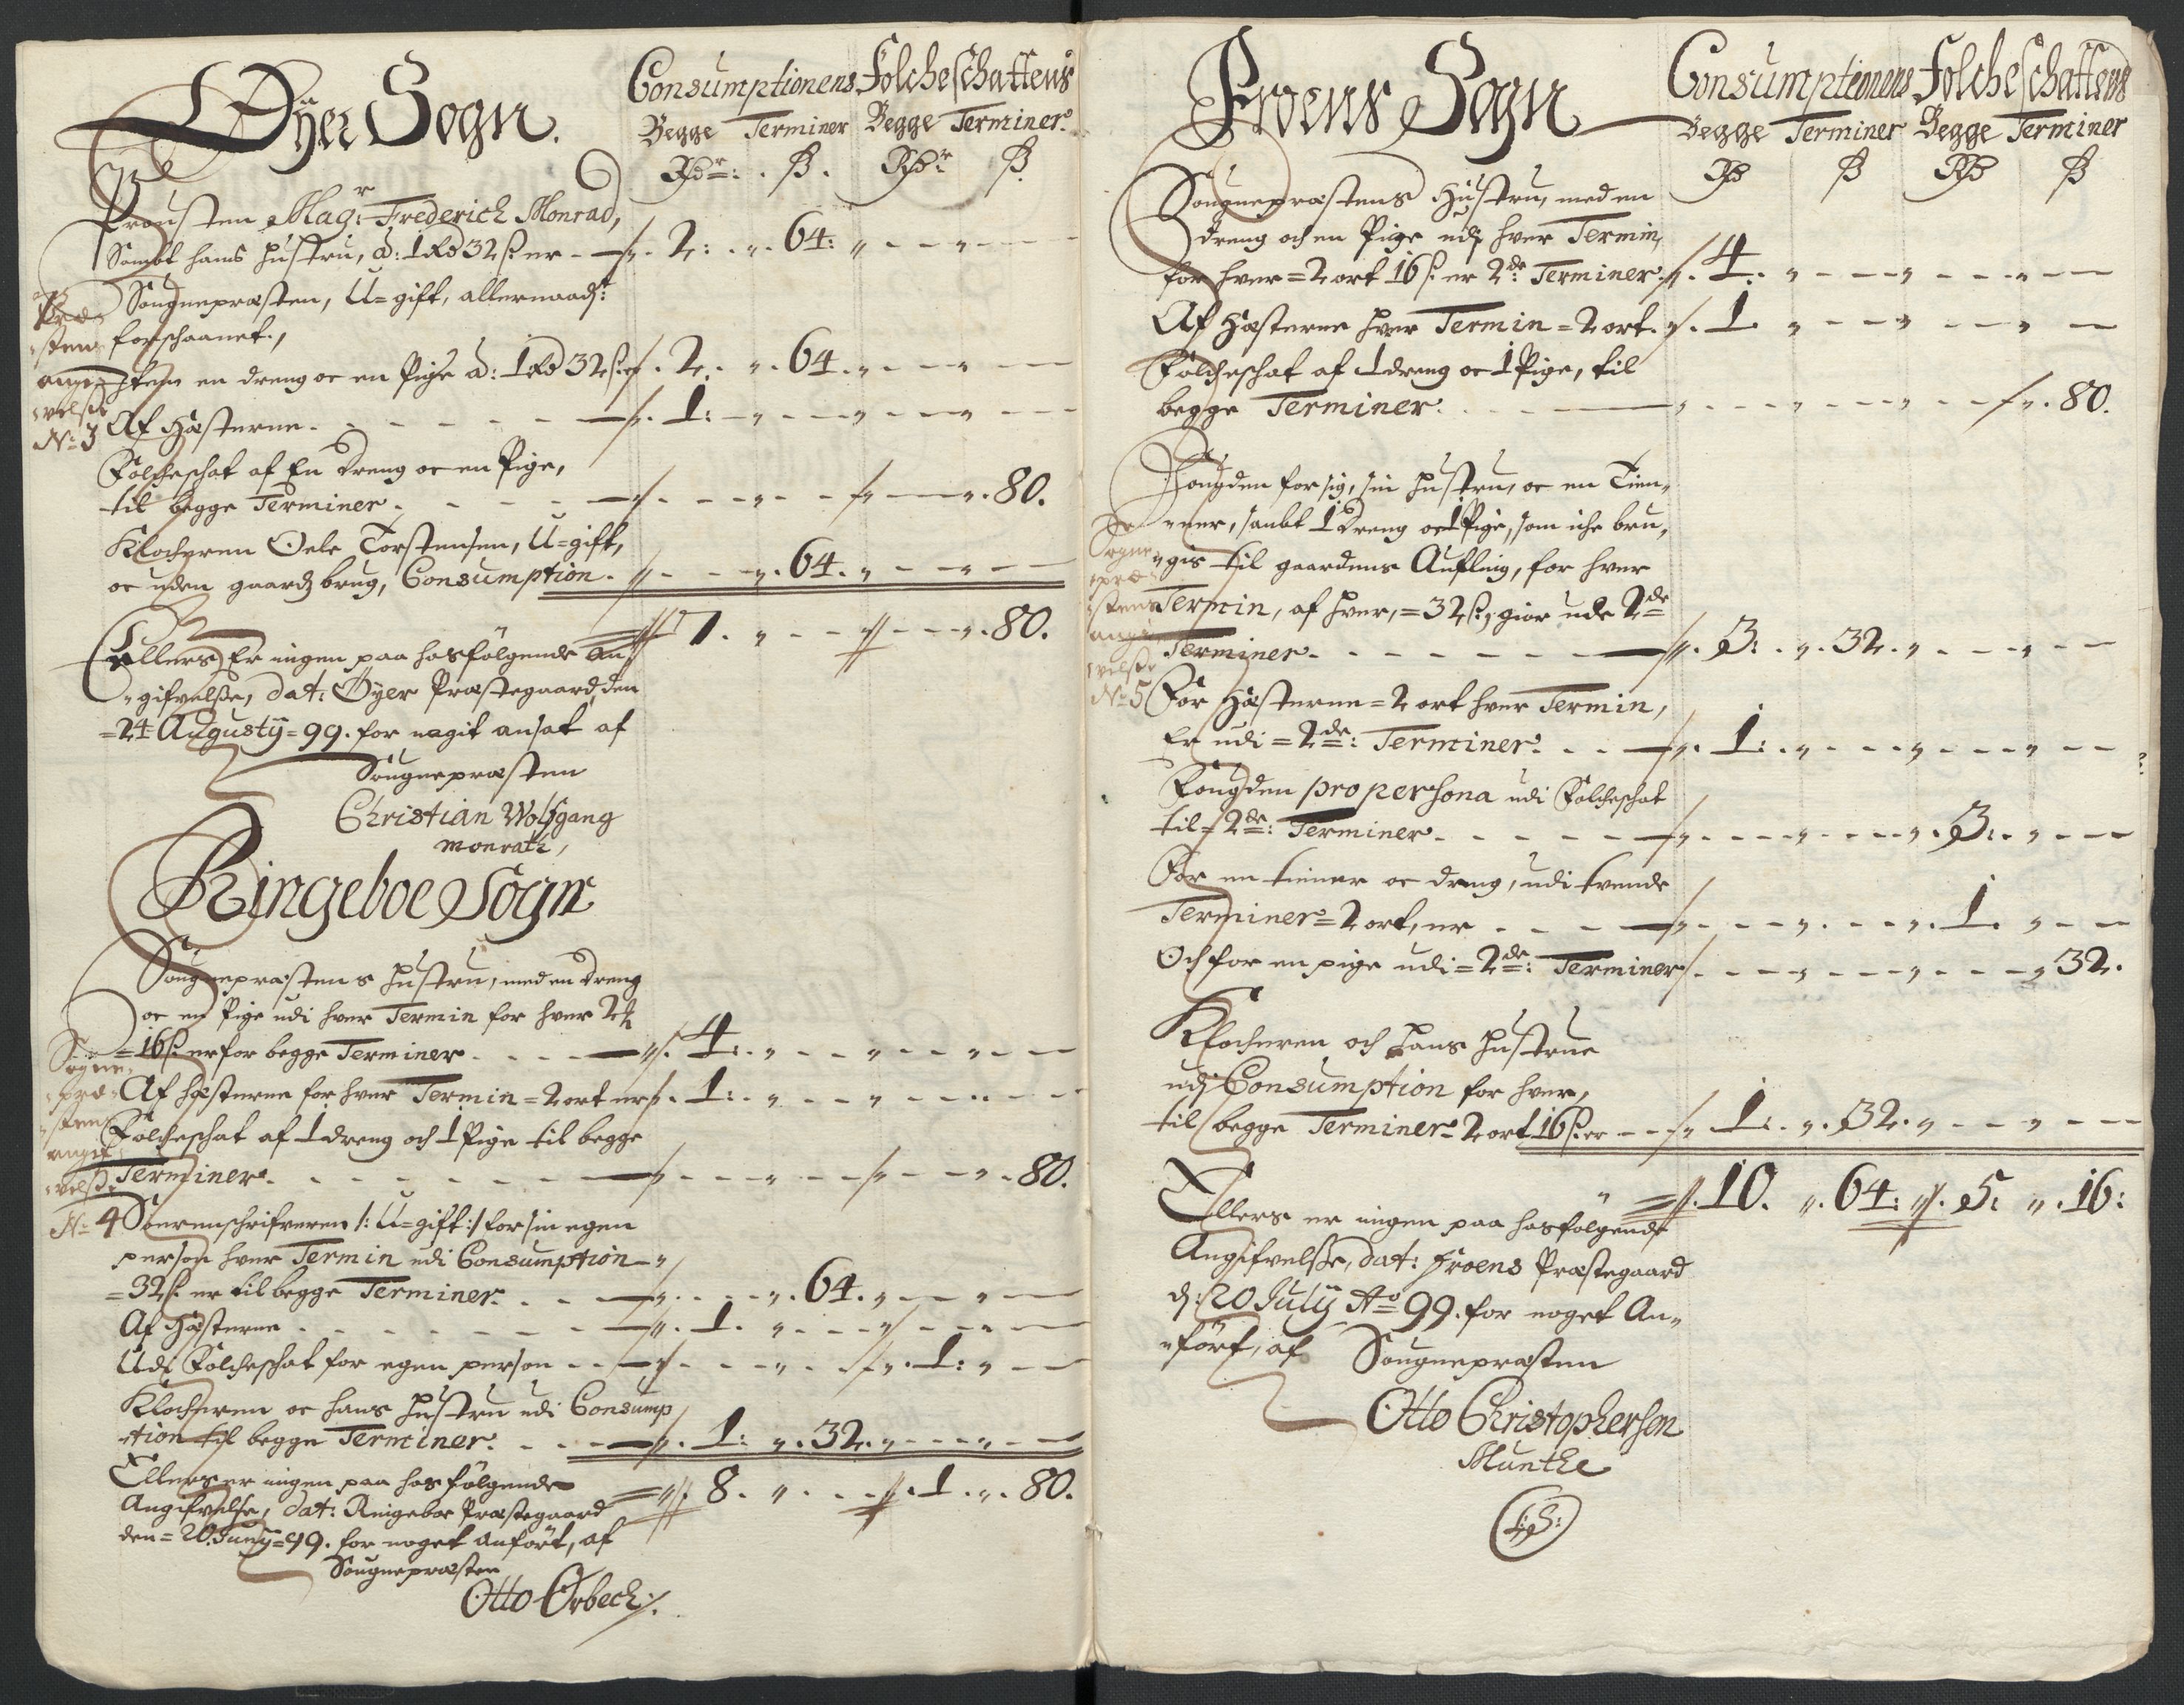 Øyer Sogn.
Consumptionens Folcheschattens
Begge Terminer Begge Terminer
Rdr: ß. Rdr ß.
Prousten Magr: Frederich Monrad,
Sambt hans hustru, â: 1 Rd 32 ß. er - 2: „ 64: „
Sougnepræsten, U=gift, allernaad:t
forschaanet.,
Item en dreng oc en Pige â: 1 Rd 32 ß. er 2. „ 64. „
Af Hæsterne. - 1: „
Folcheschat af En dreng oc en Pige,
til begge Terminer. - „ 80.
Klocheren Oele Torstensen, U=gift,
oc uden gaards brug, Consumption. „ 64. „
7. „ „ 80.
Præ-
sten
angif
velße
No 3
Ellers Er ingen paa hosfølgende An=
gifvelße, dat: Øyer Præstegaard, den
=24 Augustij=99. for nogit ansat af
Sougnepræsten
Christian Wolfgang
monratz,
Ringeboe Sogn
Sougnepræstens hustru, med en dreng
oc en Pige udi hver Termin for hver 2 ß
=16 ß. er for begge Terminer - 4. „
Af hæsterne for hver Termin = 2 ort er 1: „
Folcheschat af 1 dreng och 1 Pige til begge
Terminer. - „ 80.
Sogne
præ-
stens
angif
velße
No 4
Sorenschrifveren /: U=gift :/ for sin egen
person hver Termin udi Consumption
=32 ß. er til begge Terminer. - „ 64. „
Af Hæsterne - 1. „
Udi Folcheschat for egen person - 1: „
Klocheren oc hans hustru udi Consump
tion til begge Terminer. - 1: „ 32. „
8. „ 1. „ 80.
Ellers er ingen paa hosfølgende
Angifvelse, dat: Ringeboe Præstegaard
den = 20. Junij=99. for noget anført, af
Sougnepræsten
Otto Orbech ./.
Froens Sogn
Consumptionens Folcheschattens
Begge Terminer Begge Terminer
Rd ß Rd ß
Sougnepræstens Hustru, med en
dreng och en Pige udj hver Termin,
for hver = 2 ort 16 ß. er 2de: Terminer 4. „
Af Hæsterne hver Termin = 2 ort. 1 „
Folcheschat af 1 dreng oc 1 Pige, til
begge Terminer. - „ 80.
Fougden for sig, sin hustru, oc en Tien„
„ner, sambt 1 dreng oc 1 Pige, som iche bru„
„gis til gaardens Aufling, for hver
Termin, af hver, = 32 ß, giør udi 2de
Terminer. - 3: „ 32. „
Sogne
præ-
stens
angi
velße
No 5
For Hæsterne = 2 ort hver Termin,
Er udi = 2de: Terminer. - 1: „
Fougden pro persona udi Folcheschat
til = 2de: Terminer. - 3: „
For en tiener oc dreng, udi tvende
Terminer = 2 ort, er - 1. „
Och for en pige udi = 2de: Terminer „ 32.
Klocheren och hans Hustrue
udj Consumption for hver,
til begge Terminer 2 ort 16 ß. er - 1: „ 32. „
10. „ 64: 5: „ 16:
Ellers er ingen paa hosfølgende
Angifvelße, dat: Froens Præstegaard
d: 20 Julij Ao 99. for noget An„
„ført, af Sougnepræsten
Otto Christopherson
Munthe
L:S: